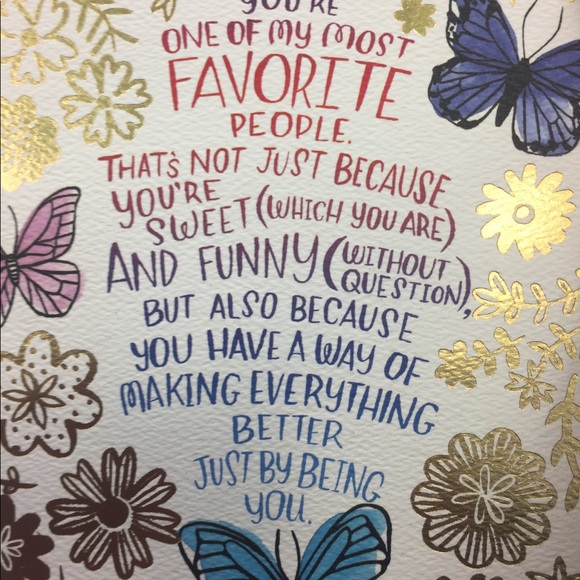 YOU'RE
ONE OF MY MOST
FAVORITE
PEOPLE.
THAT'S NOT JUST BECAUSE
YOU'RE
SWEET (WHICH YOU ARE)
AND FUNNY (WITHOUT
QUESTION),
BUT ALSO BECAUSE
YOU HAVE A WAY OF
MAKING EVERYTHING
BETTER
JUST BY BEING
YOU.